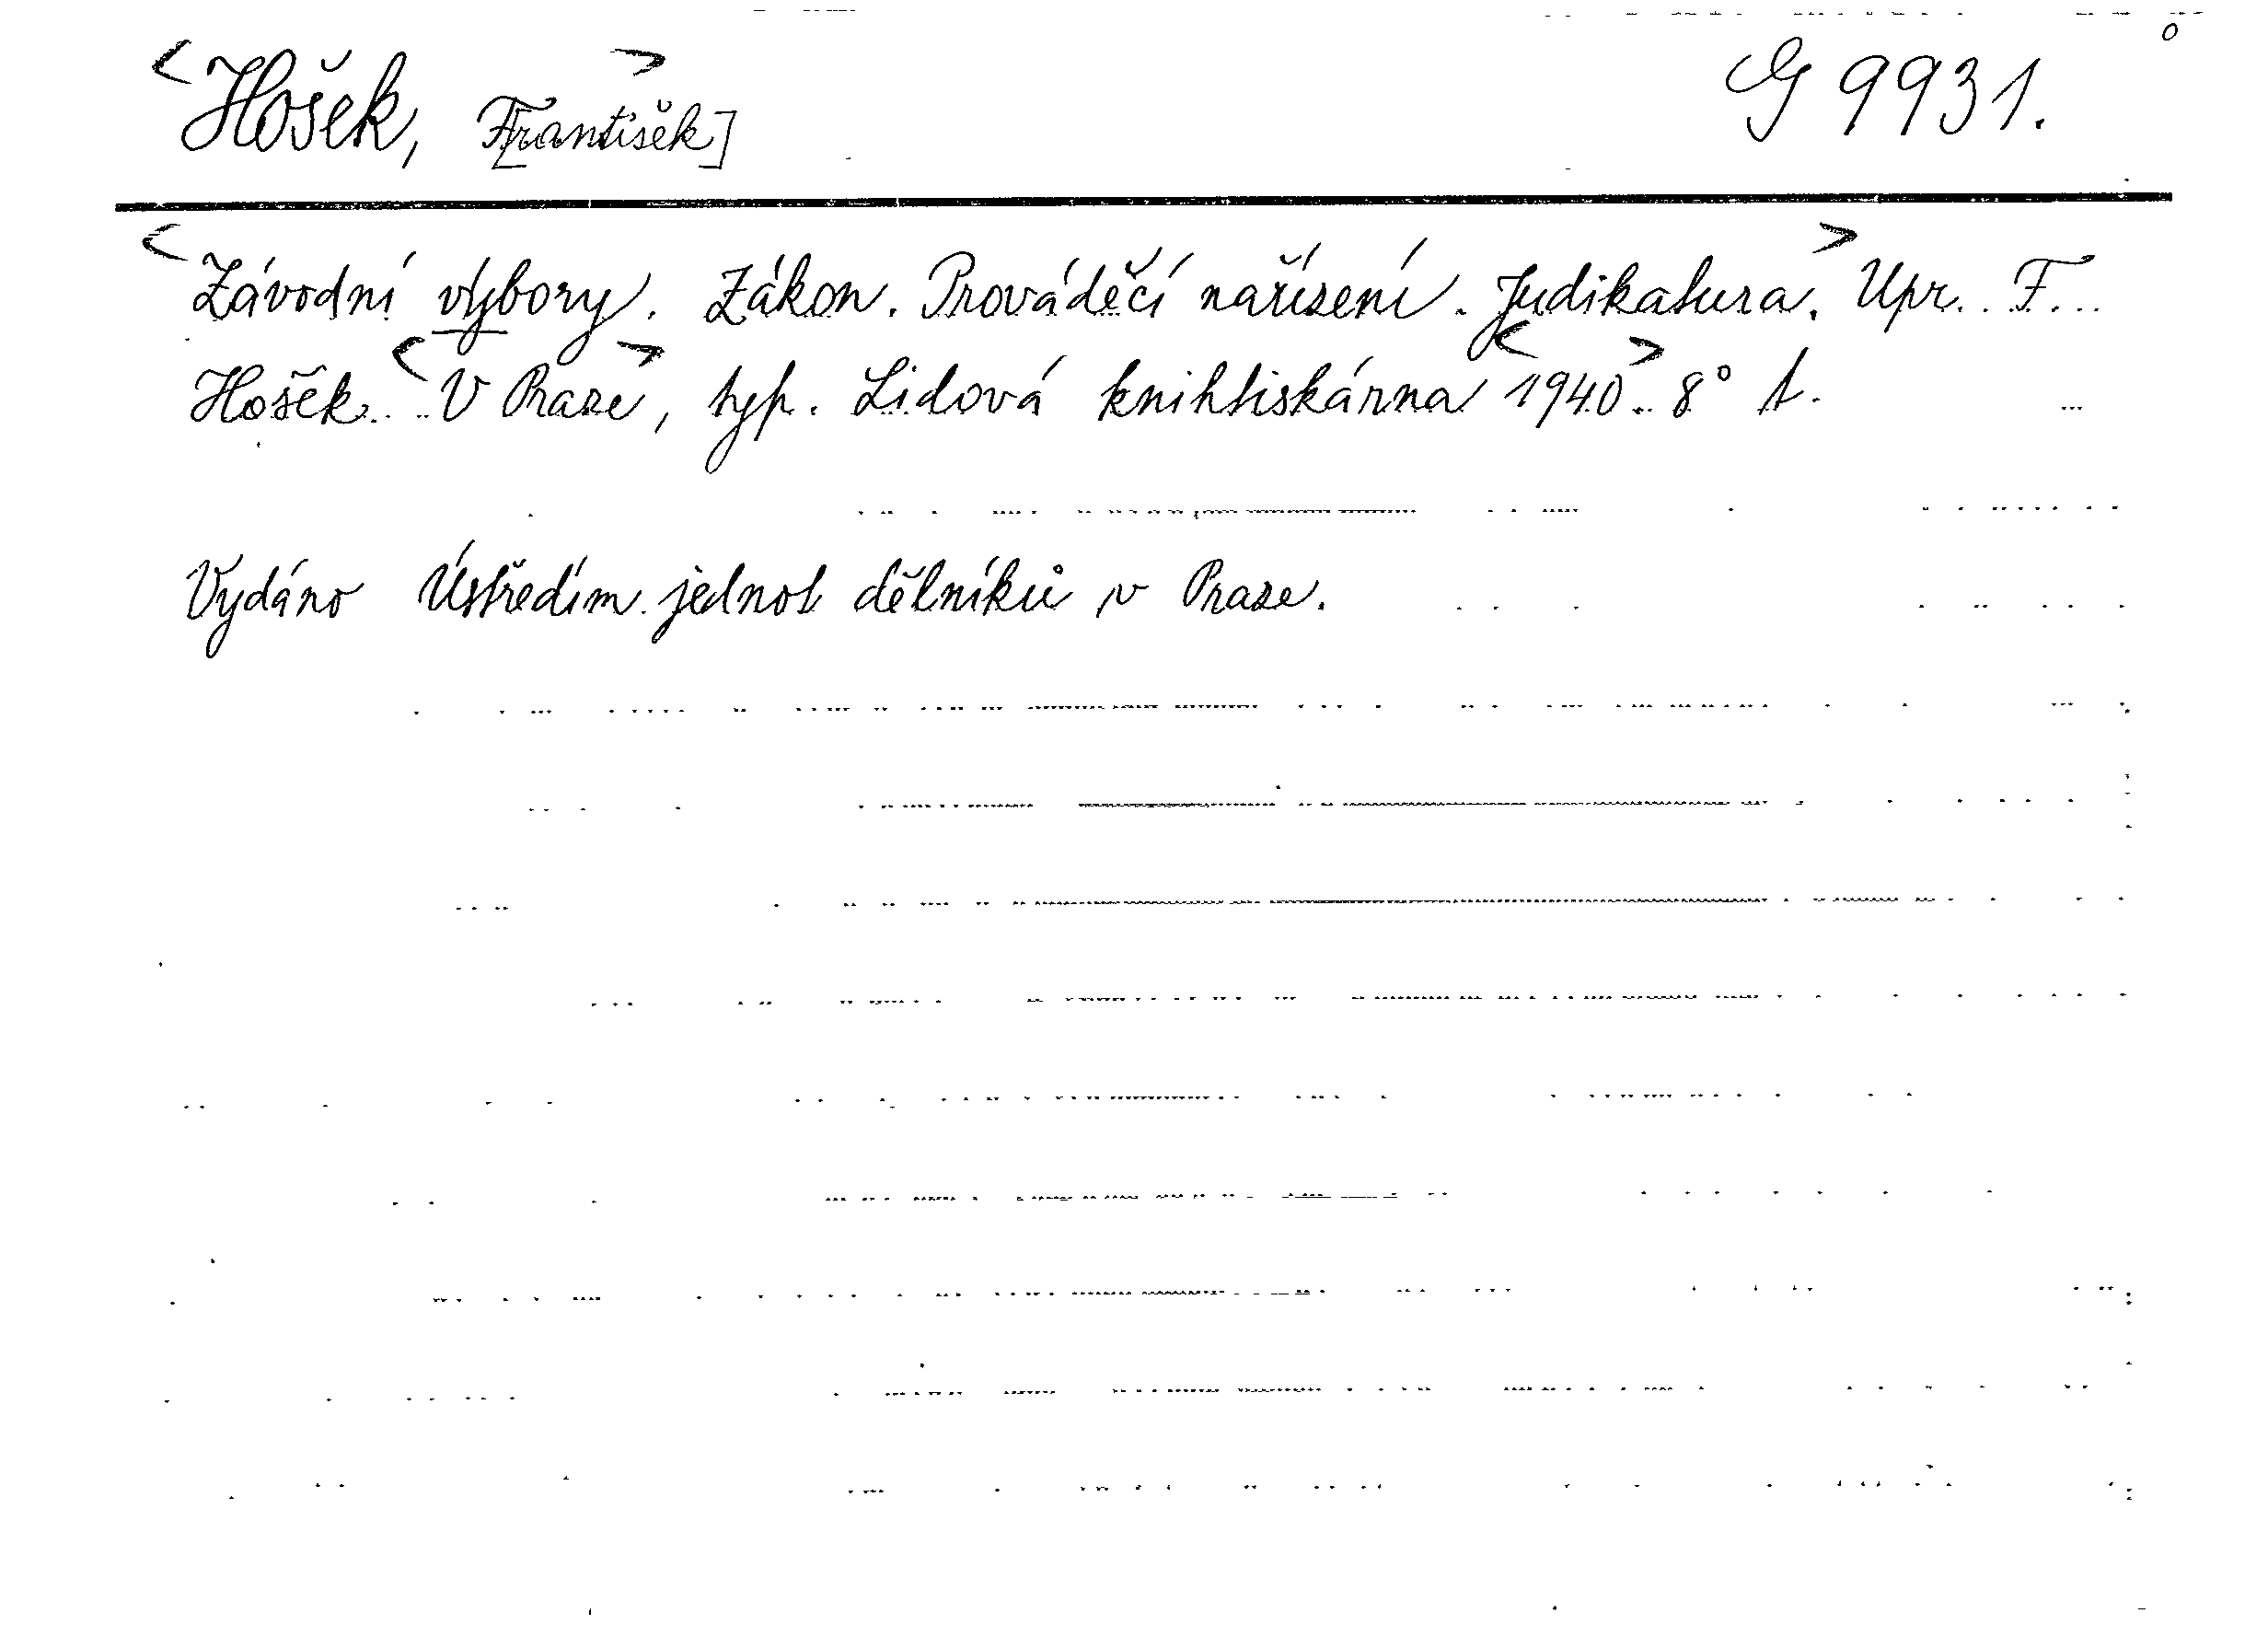 <Hošek, F[rantišek]> G 9931.
<Závodní výbory. Zákon. Prováděčí nařízení. Judikatura.> Upr. F.
Hošek. <V Praze>, typ. Lidová knihtiskárna <1940>. 8° t.
Vydáno Ústředím jednot dělníků v Praze.